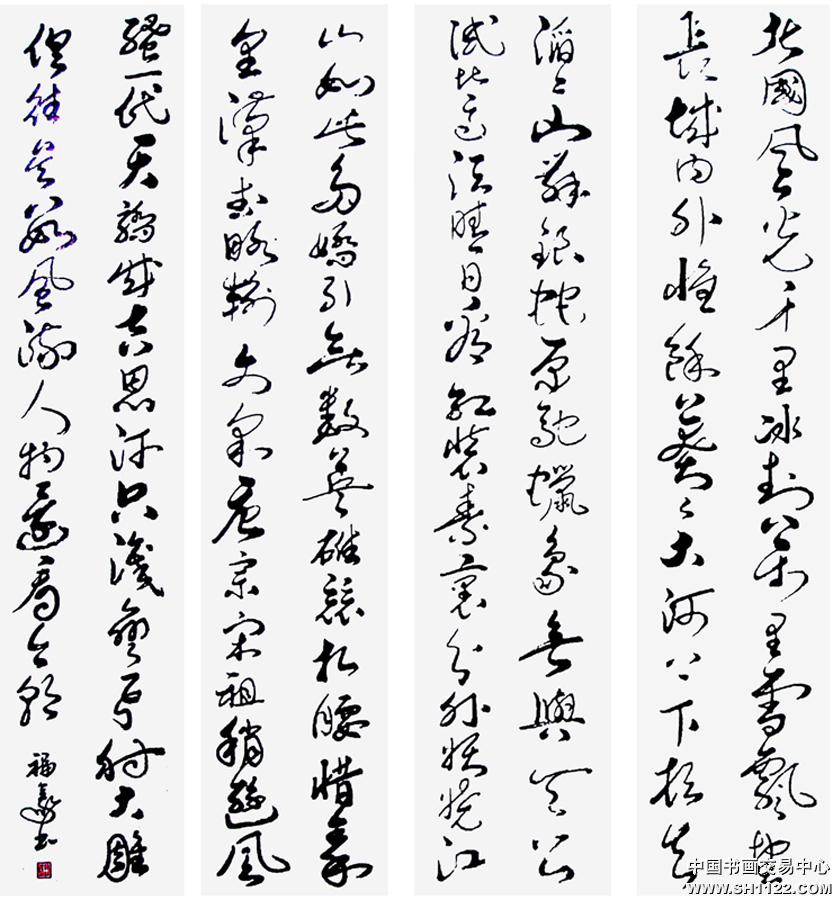 北國風光千里冰封萬里雪飄望
長城内外惟餘莽々大河上下頓失
滔々山舞銀蛇原馳蠟象欲與天公
試比高須晴日看紅裝素裹分外妖嬈江
山如此多嬌引無數英雄競折腰惜秦
皇漢武略輸文采唐宗宋祖稍遜風
騷一代天驕成吉思汗只識彎弓射大雕
俱往矣數風流人物還看今朝
福
中国书画交易中心
www.SH1122.COM